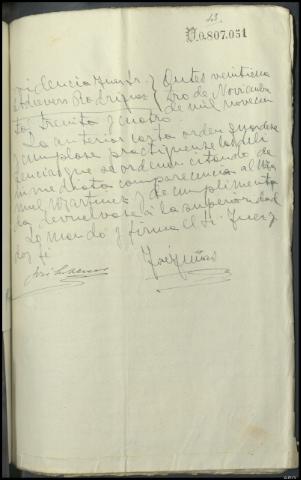 43
0.807.051
Providencia Juez Sr. } Outes veintiuno
Adievers Rodriguez } bro de Noviembre
de mil novecien
tos treinta y cuatro.
La anterior carta orden guardese
y cumplase practiquense las dili
gencias que se ordenan citando de
inmediata comparecencia al Ma
nuel Martinez y de cumplimenta
da devuelvase a la superioridad
Lo mandó y firma el Sr. Juez
doy fé